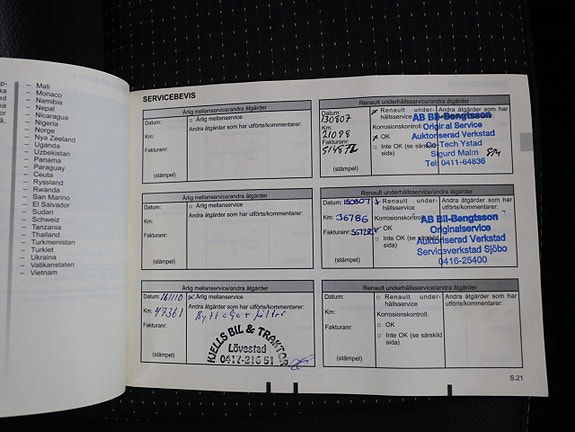 – Mali
– Monaco
– Namibia
– Nepal
– Nicaragua
– Nigeria
– Norge
– Nya Zeeland
– Uganda
– Uzbekistan
– Panama
– Paraguay
– Ceuta
– Ryssland
– Rwanda
– San Marino
– El Salvador
– Sudan
– Schweiz
– Tanzania
– Thailand
– Turkmenistan
– Turkiet
– Ukraina
– Vatikanstaten
– Vietnam
SERVICEBEVIS
Årlig mellanservice/andra åtgärder
Datum:
Km:
Fakturanr:
(stämpel)
□ Årlig mellanservice
Andra åtgärder som har utförts/kommentarer:
Renault underhållsservice/andra åtgärder
Datum:
130807
Km:
21098
Fakturanr:
(stämpel)
Renault under-
hållsservice
Korrosionskontroll:
OK
Inte OK (se särskild
sida)
Andra åtgärder som har
AB Bil-Bengtsson
Original Service
Auktoriserad Verkstad
Co-Tech Ystad
Sigurd Malm
Tel: 0411-64836
Årlig mellanservice/andra åtgärder
Datum:
Km:
Fakturanr:
(stämpel)
□ Årlig mellanservice
Andra åtgärder som har utförts/kommentarer:
Renault underhållsservice/andra åtgärder
Datum: 150807
Km: 36786
Fakturanr:
(stämpel)
Renault under-
hållsservice
Korrosionskontroll:
OK
Inte OK (se särskild
sida)
Andra åtgärder som har
AB Bil-Bengtsson
Originalservice
Auktoriserad Verkstad
Serviceverkstad Sjöbo
0416-25400
Årlig mellanservice/andra åtgärder
Datum: 161110
Km: 47361
Fakturanr:
(stämpel)
Årlig mellanservice
Andra åtgärder som har utförts/kommentarer:
Bytt olja + filter
KJELLS BIL & TRAKTOR
Lövestad
0417-216 51
Renault underhållsservice/andra åtgärder
Datum:
Km:
Fakturanr:
(stämpel)
□ Renault under-
hållsservice
Korrosionskontroll:
□ OK
□ Inte OK (se särskild
sida)
Andra åtgärder som har
utförts/kommentarer:
S.21